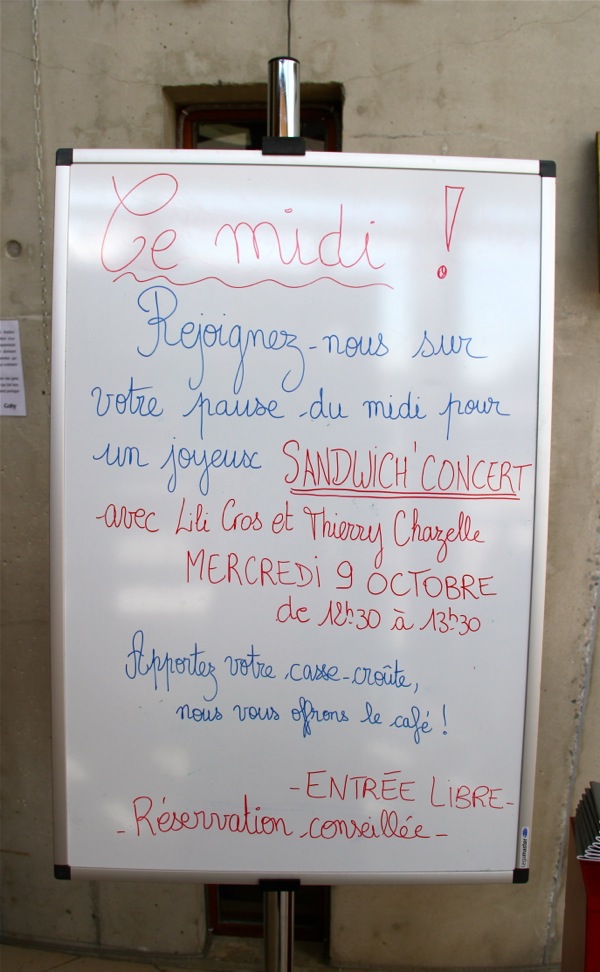 Ce midi !
Rejoignez-nous sur
votre pause du midi pour
un joyeux SANDWICH'CONCERT
avec Lili Cros et Thierry Chazelle
MERCREDI 9 OCTOBRE
de 12h30 à 13h30
Apportez votre casse-croûte,
nous vous offrons le café !
- ENTRÉE LIBRE -
- Réservation conseillée -
legamaster